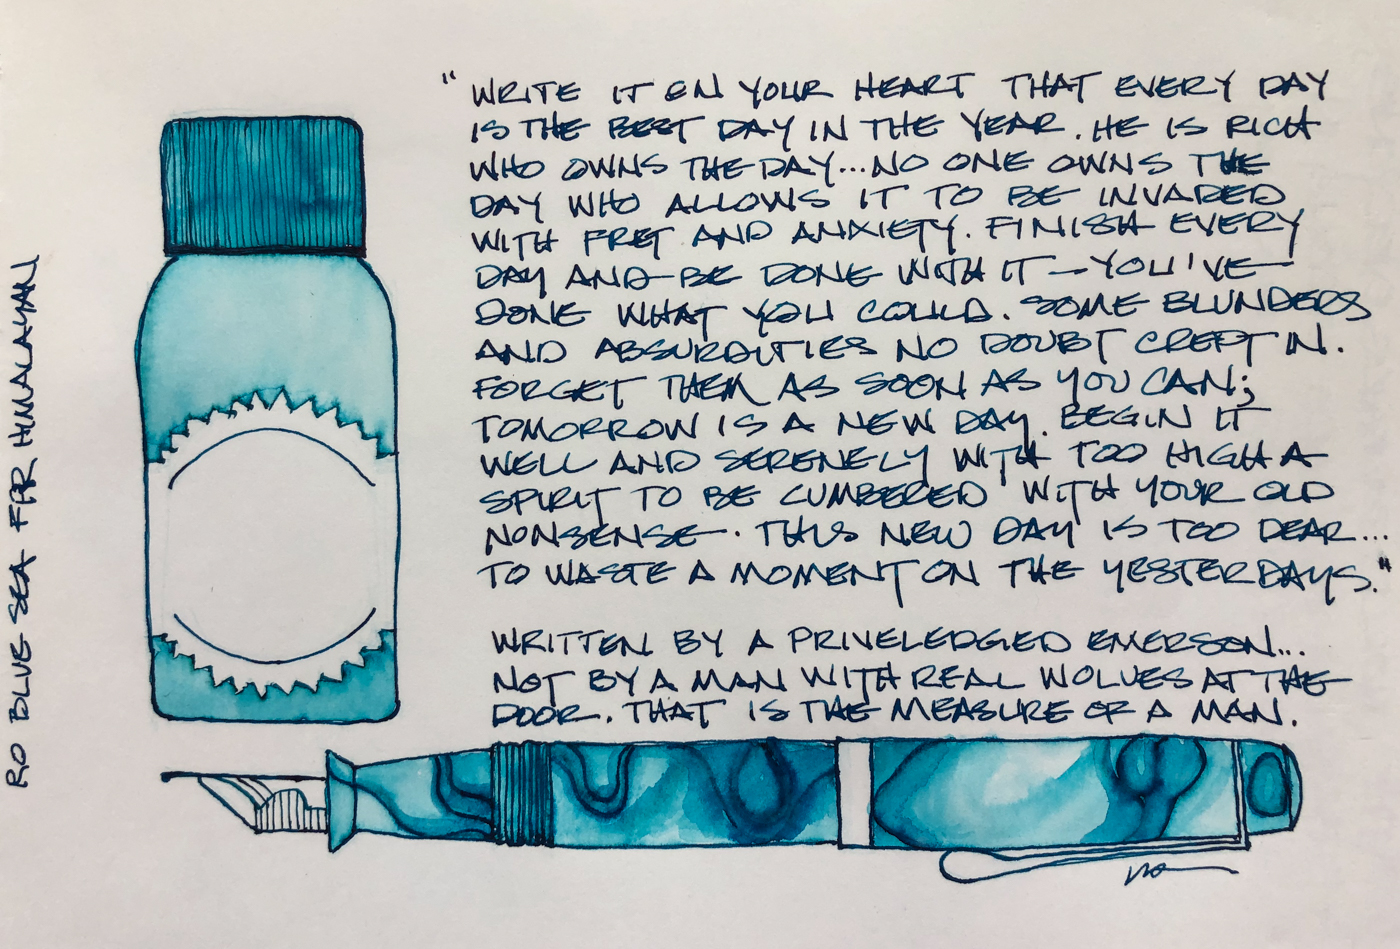 "WRITE IT ON YOUR HEART THAT EVERY DAY
IS THE BEST DAY IN THE YEAR. HE IS RICH
WHO OWNS THE DAY...NO ONE OWNS THE
DAY WHO ALLOWS IT TO BE INVADED
WITH FRET AND ANXIETY. FINISH EVERY
DAY AND BE DONE WITH IT — YOU'VE
DONE WHAT YOU COULD. SOME BLUNDERS
AND ABSURDITIES NO DOUBT CREPT IN.
FORGET THEM AS SOON AS YOU CAN;
TOMORROW IS A NEW DAY. BEGIN IT
WELL AND SERENELY WITH TOO HIGH A
SPIRIT TO BE CUMBERED WITH YOUR OLD
NONSENSE. THIS NEW DAY IS TOO DEAR...
TO WASTE A MOMENT ON THE YESTERDAYS."
WRITTEN BY A PRIVELEDGED EMERSON...
NOT BY A MAN WITH REAL WOLVES AT THE
DOOR. THAT IS THE MEASURE OF A MAN.
RO BLUE SEA FPR HIMALAYAN